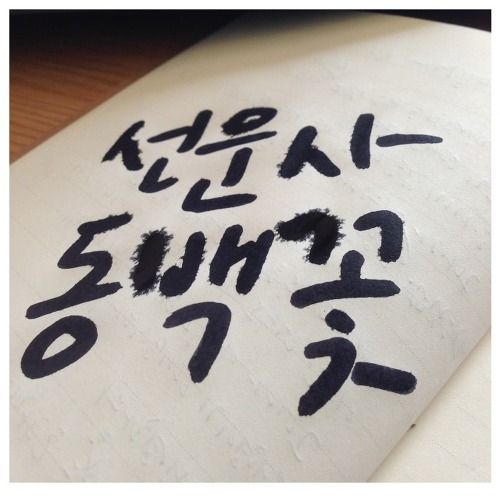 선운사
동백꽃